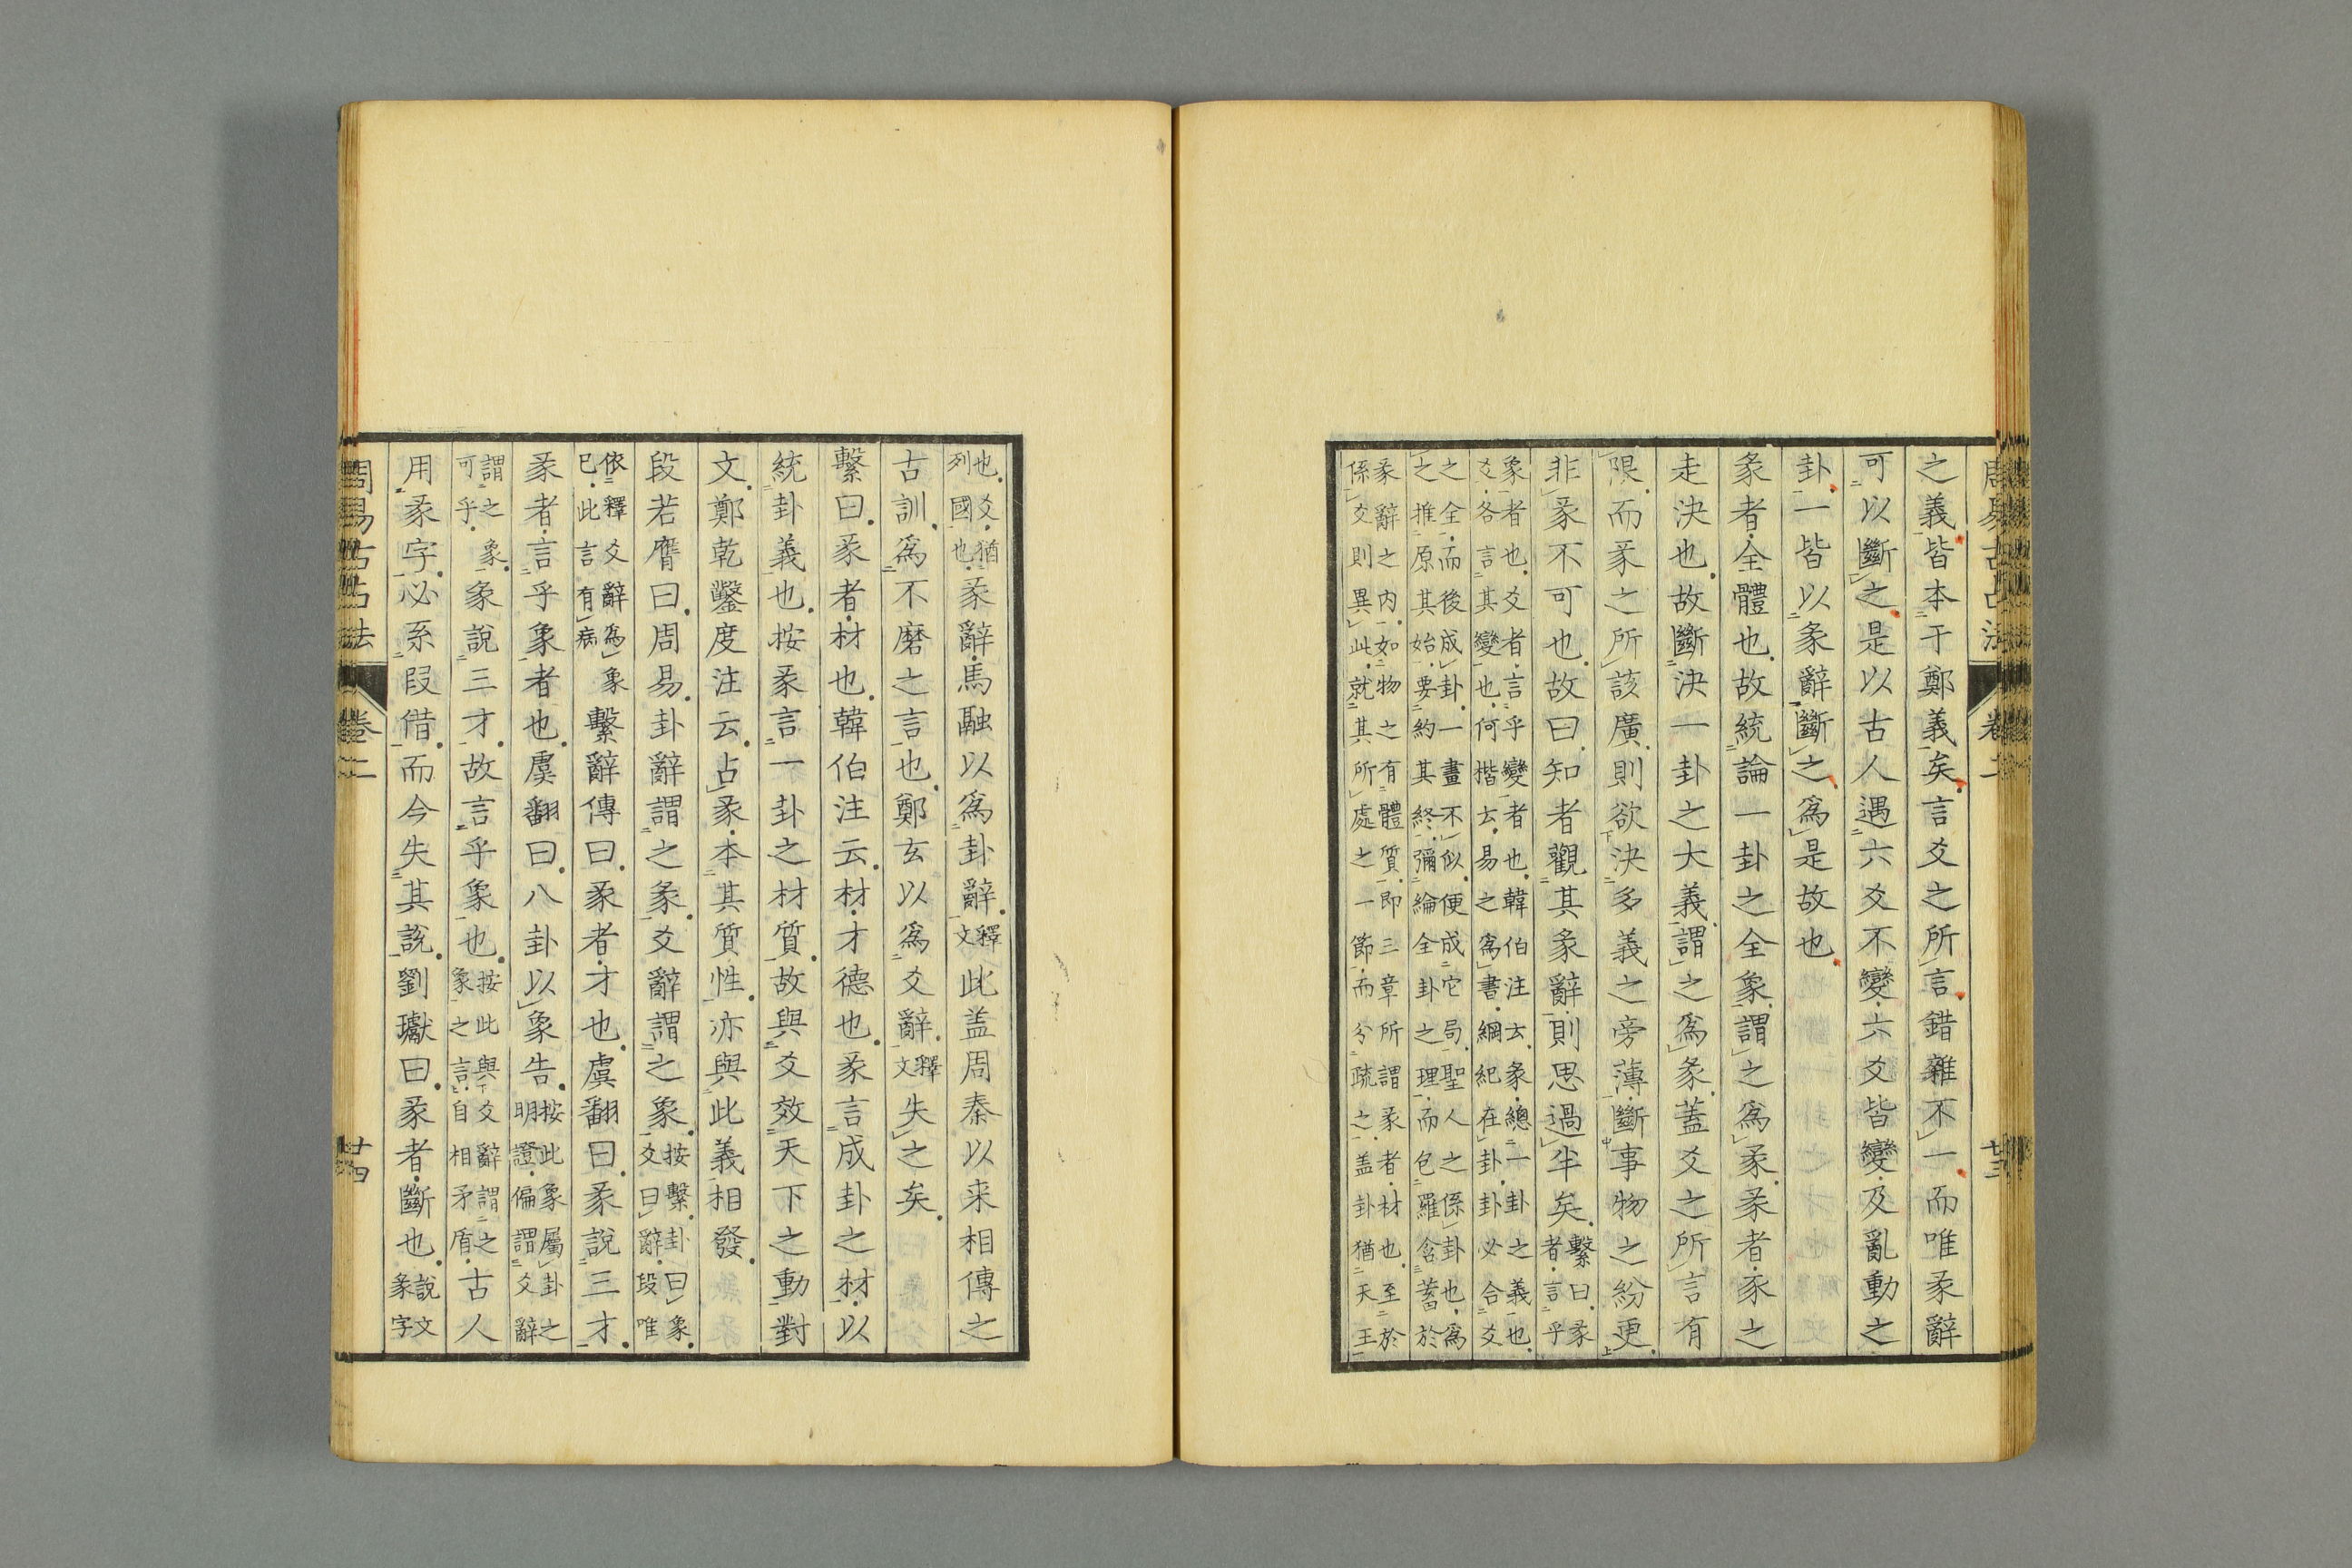 周易古占法 卷二 廿三
之義皆本于鄭義矣言爻之所言錯雜不一而唯彖辭
可以斷之是以古人遇六爻不變六爻皆變及亂動之
卦一皆以彖辭斷之爲是故也
彖者全體也故統論一卦之全象謂之爲彖彖者豕之
走決也故斷決一卦之大義謂之爲彖蓋爻之所言有
限而彖之所該廣則欲決多義之旁薄斷事物之紛更
非彖不可也故曰知者觀其彖辭則思過半矣繫曰彖
者言乎
象者也爻者言乎變者也韓伯注云彖總一卦之義也
爻各言其變也何楷云易之爲書綱紀在卦卦必合爻
之全而後成卦一畫不似便成它局聖人之係卦也爲
之推原其始要約其終彌綸全卦之理而包羅含蓄於
彖辭之内如物之有體質即三章所謂彖者材也至於
係爻則異此就其所處之一節而分疏之盖卦猶天王
也爻猶
列國也
彖辭馬融以爲卦辭釋
文
此盖周秦以来相傳之
古訓爲不磨之言也鄭玄以爲爻辭釋
文
失之矣
繫曰彖者材也韓伯注云材才德也彖言成卦之材以
統卦義也按彖言一卦之材質故與爻效天下之動對
文鄭乾鑿度注云占彖本其質性亦與此義相發
段若膺曰周易卦辭謂之彖爻辭謂之象按繫卦曰彖
爻曰辭段唯
依釋爻辭爲象
已此言有病
繫辭傳曰彖者才也虞翻曰彖說三才
彖者言乎象者也虞翻曰八卦以象告按此象屬卦之
明證偏謂爻辭
謂之象
可乎
彖說三才故言乎象也按此與爻辭謂之
象之言自相矛盾
古人
用彖字必系叚借而今失其說劉瓛曰彖者斷也說文
彖字
周易古占法 卷二 廿四